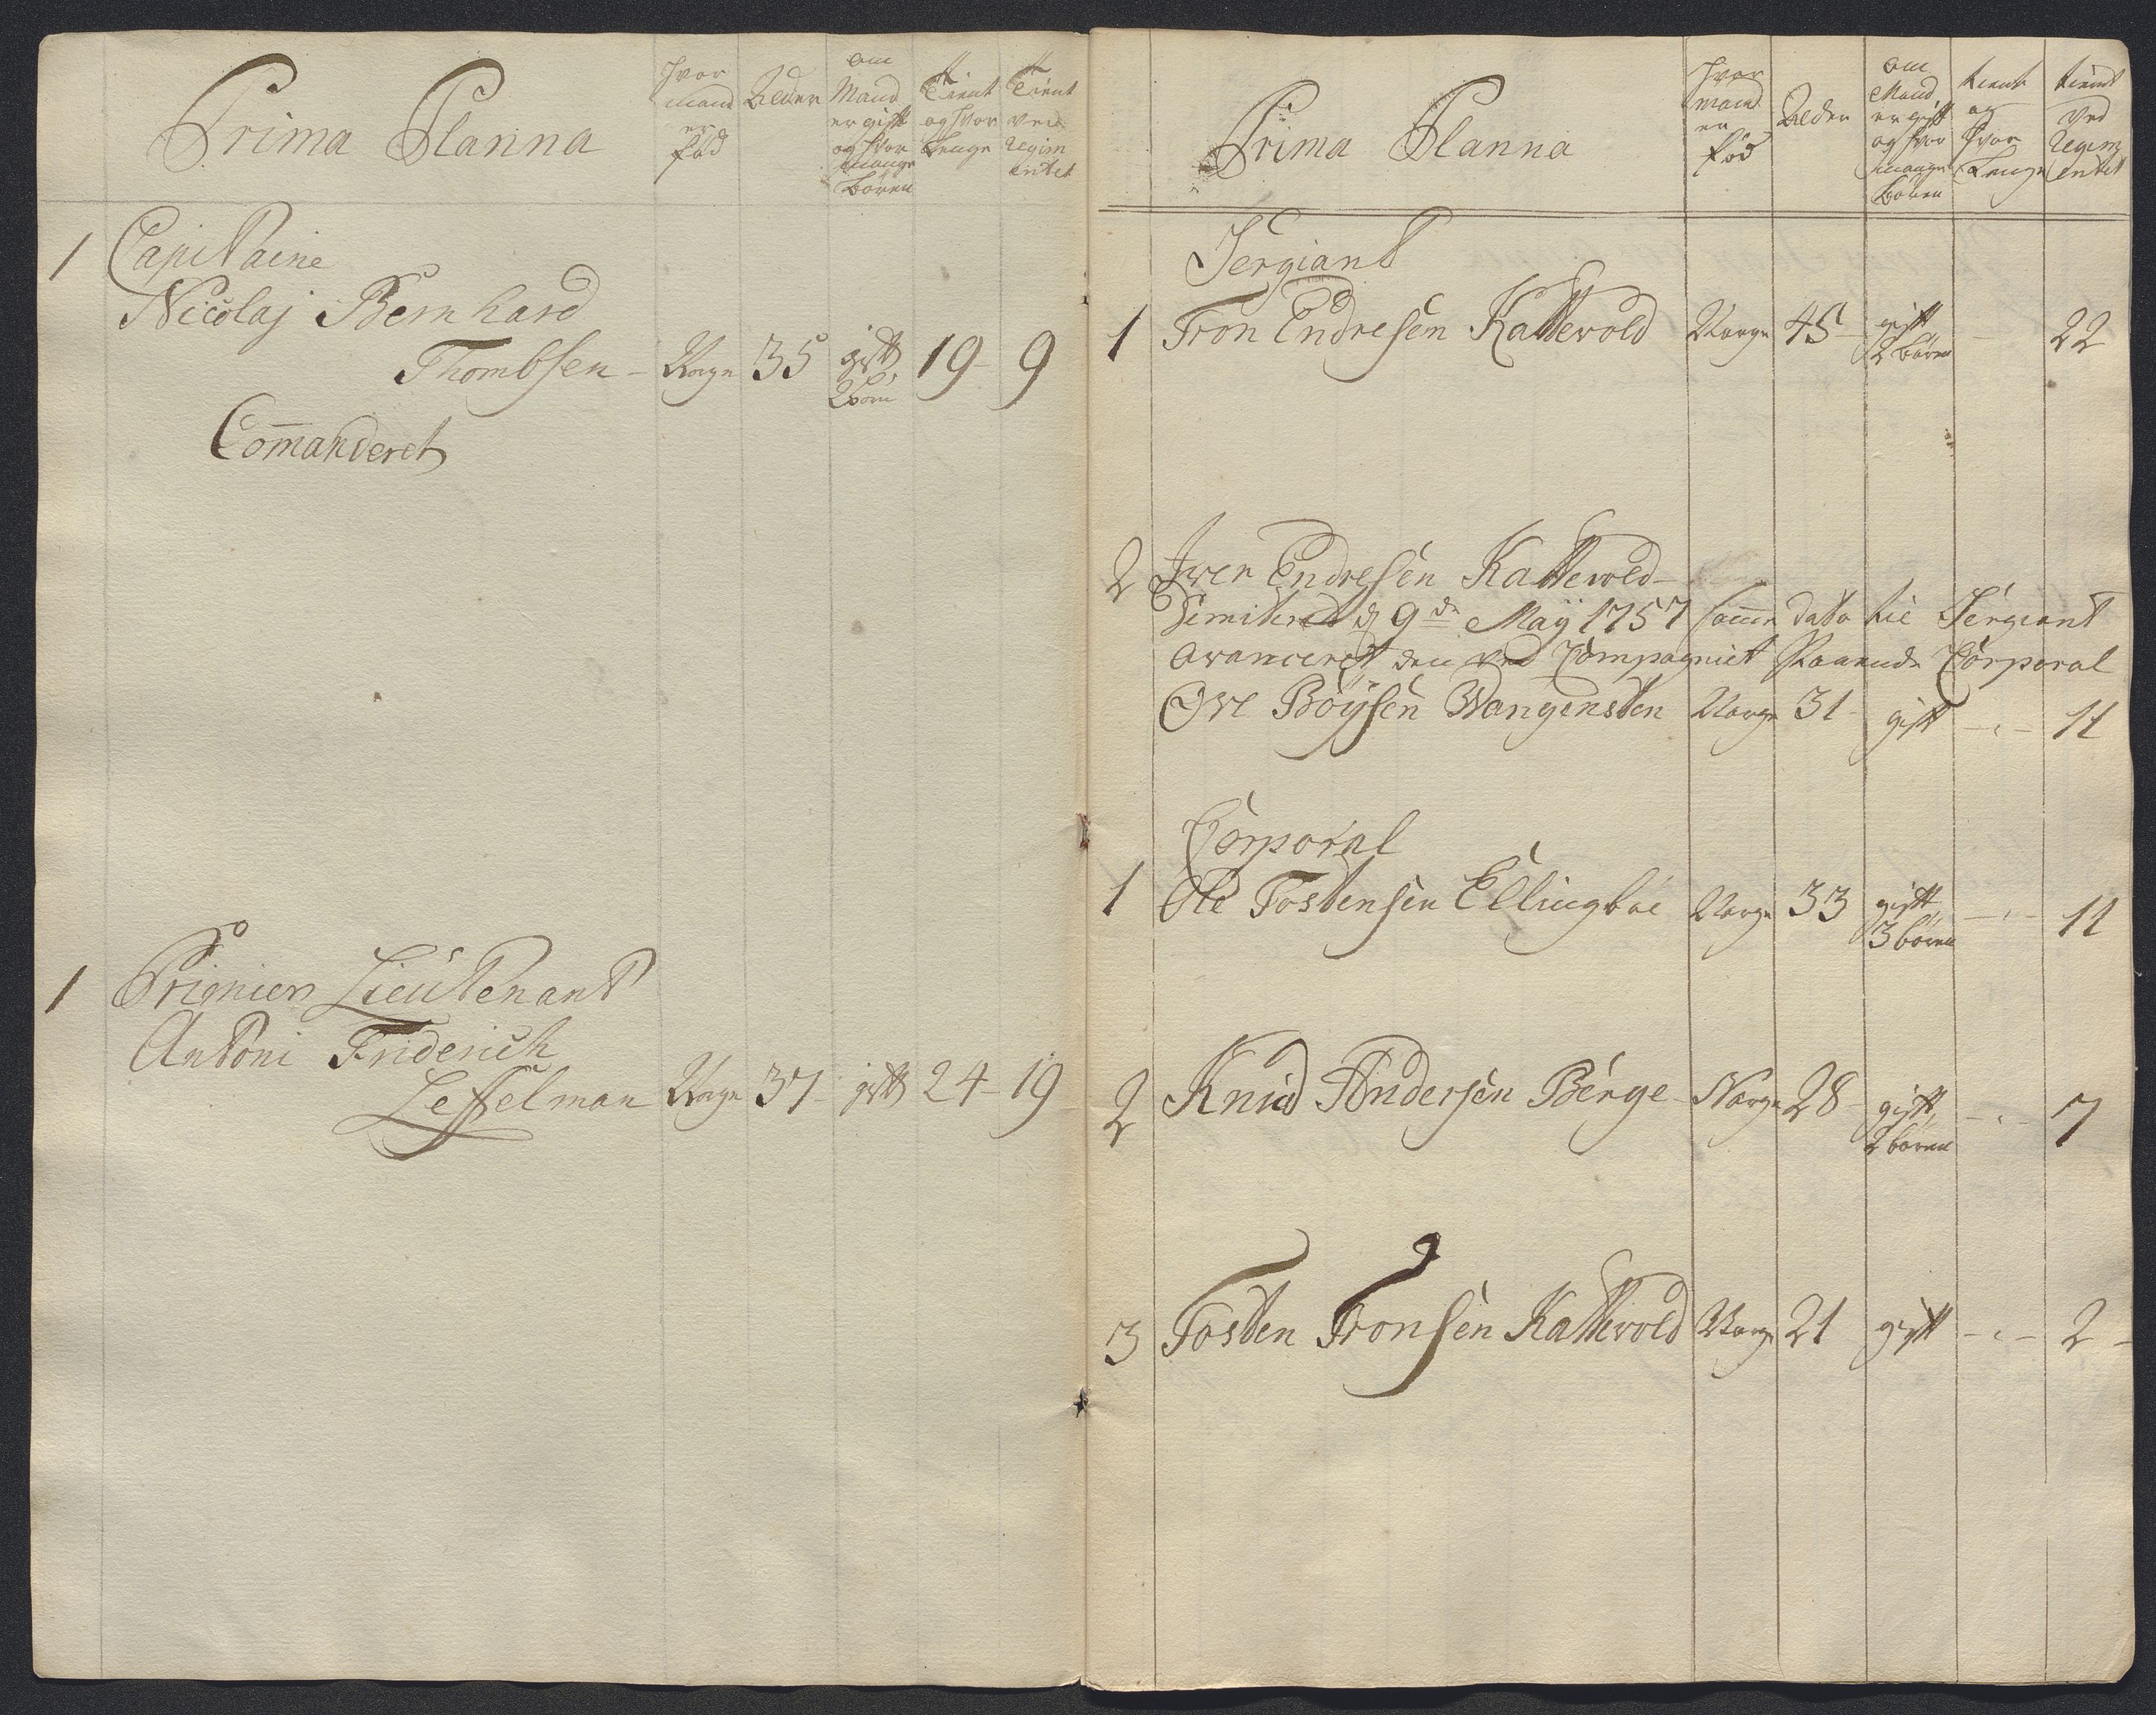 Prima Planna
hvor mand er fød
Alder
om Mand er gift og hvor mange børen
Tient og hvor lenge
Tient ved Regimentet
1 Capitaine
Nicolaj Bernhard
Thombsen - Norge 35 gift 2 børn 19 - 9
Com̄anderet
1 Premier Lieutenant
Antoni Friderich
Leffelman Norge 37 - gift 24 - 19
Prima Planna
hvor mand er fød
Alder
om Mand er gift og hvor mange børen
tient og hvor Lenge
tient ved Regimentet
Sergiant
1 Tron Endresen Kattevold Norge 45 - gift 2 børen - 22
2 Iver Endresen Kattevold -
Dimiteret d 9de Maÿ 1757 samme dato til Sergiant
avanceret den ved Compagniet staaende Corporal
Ove Böÿsen Wangensten Norge 31 - gift - " - 11
Corporal
1 Ole Tostensen Ellingbøe Norge 33 gift 3 børen - " - 11
2 Knud Andersen Berge - Norge 28 - gift 2 børen - " - 7
3 Tosten Tronsen Kattevold Norge 21 gift - " - 2 -